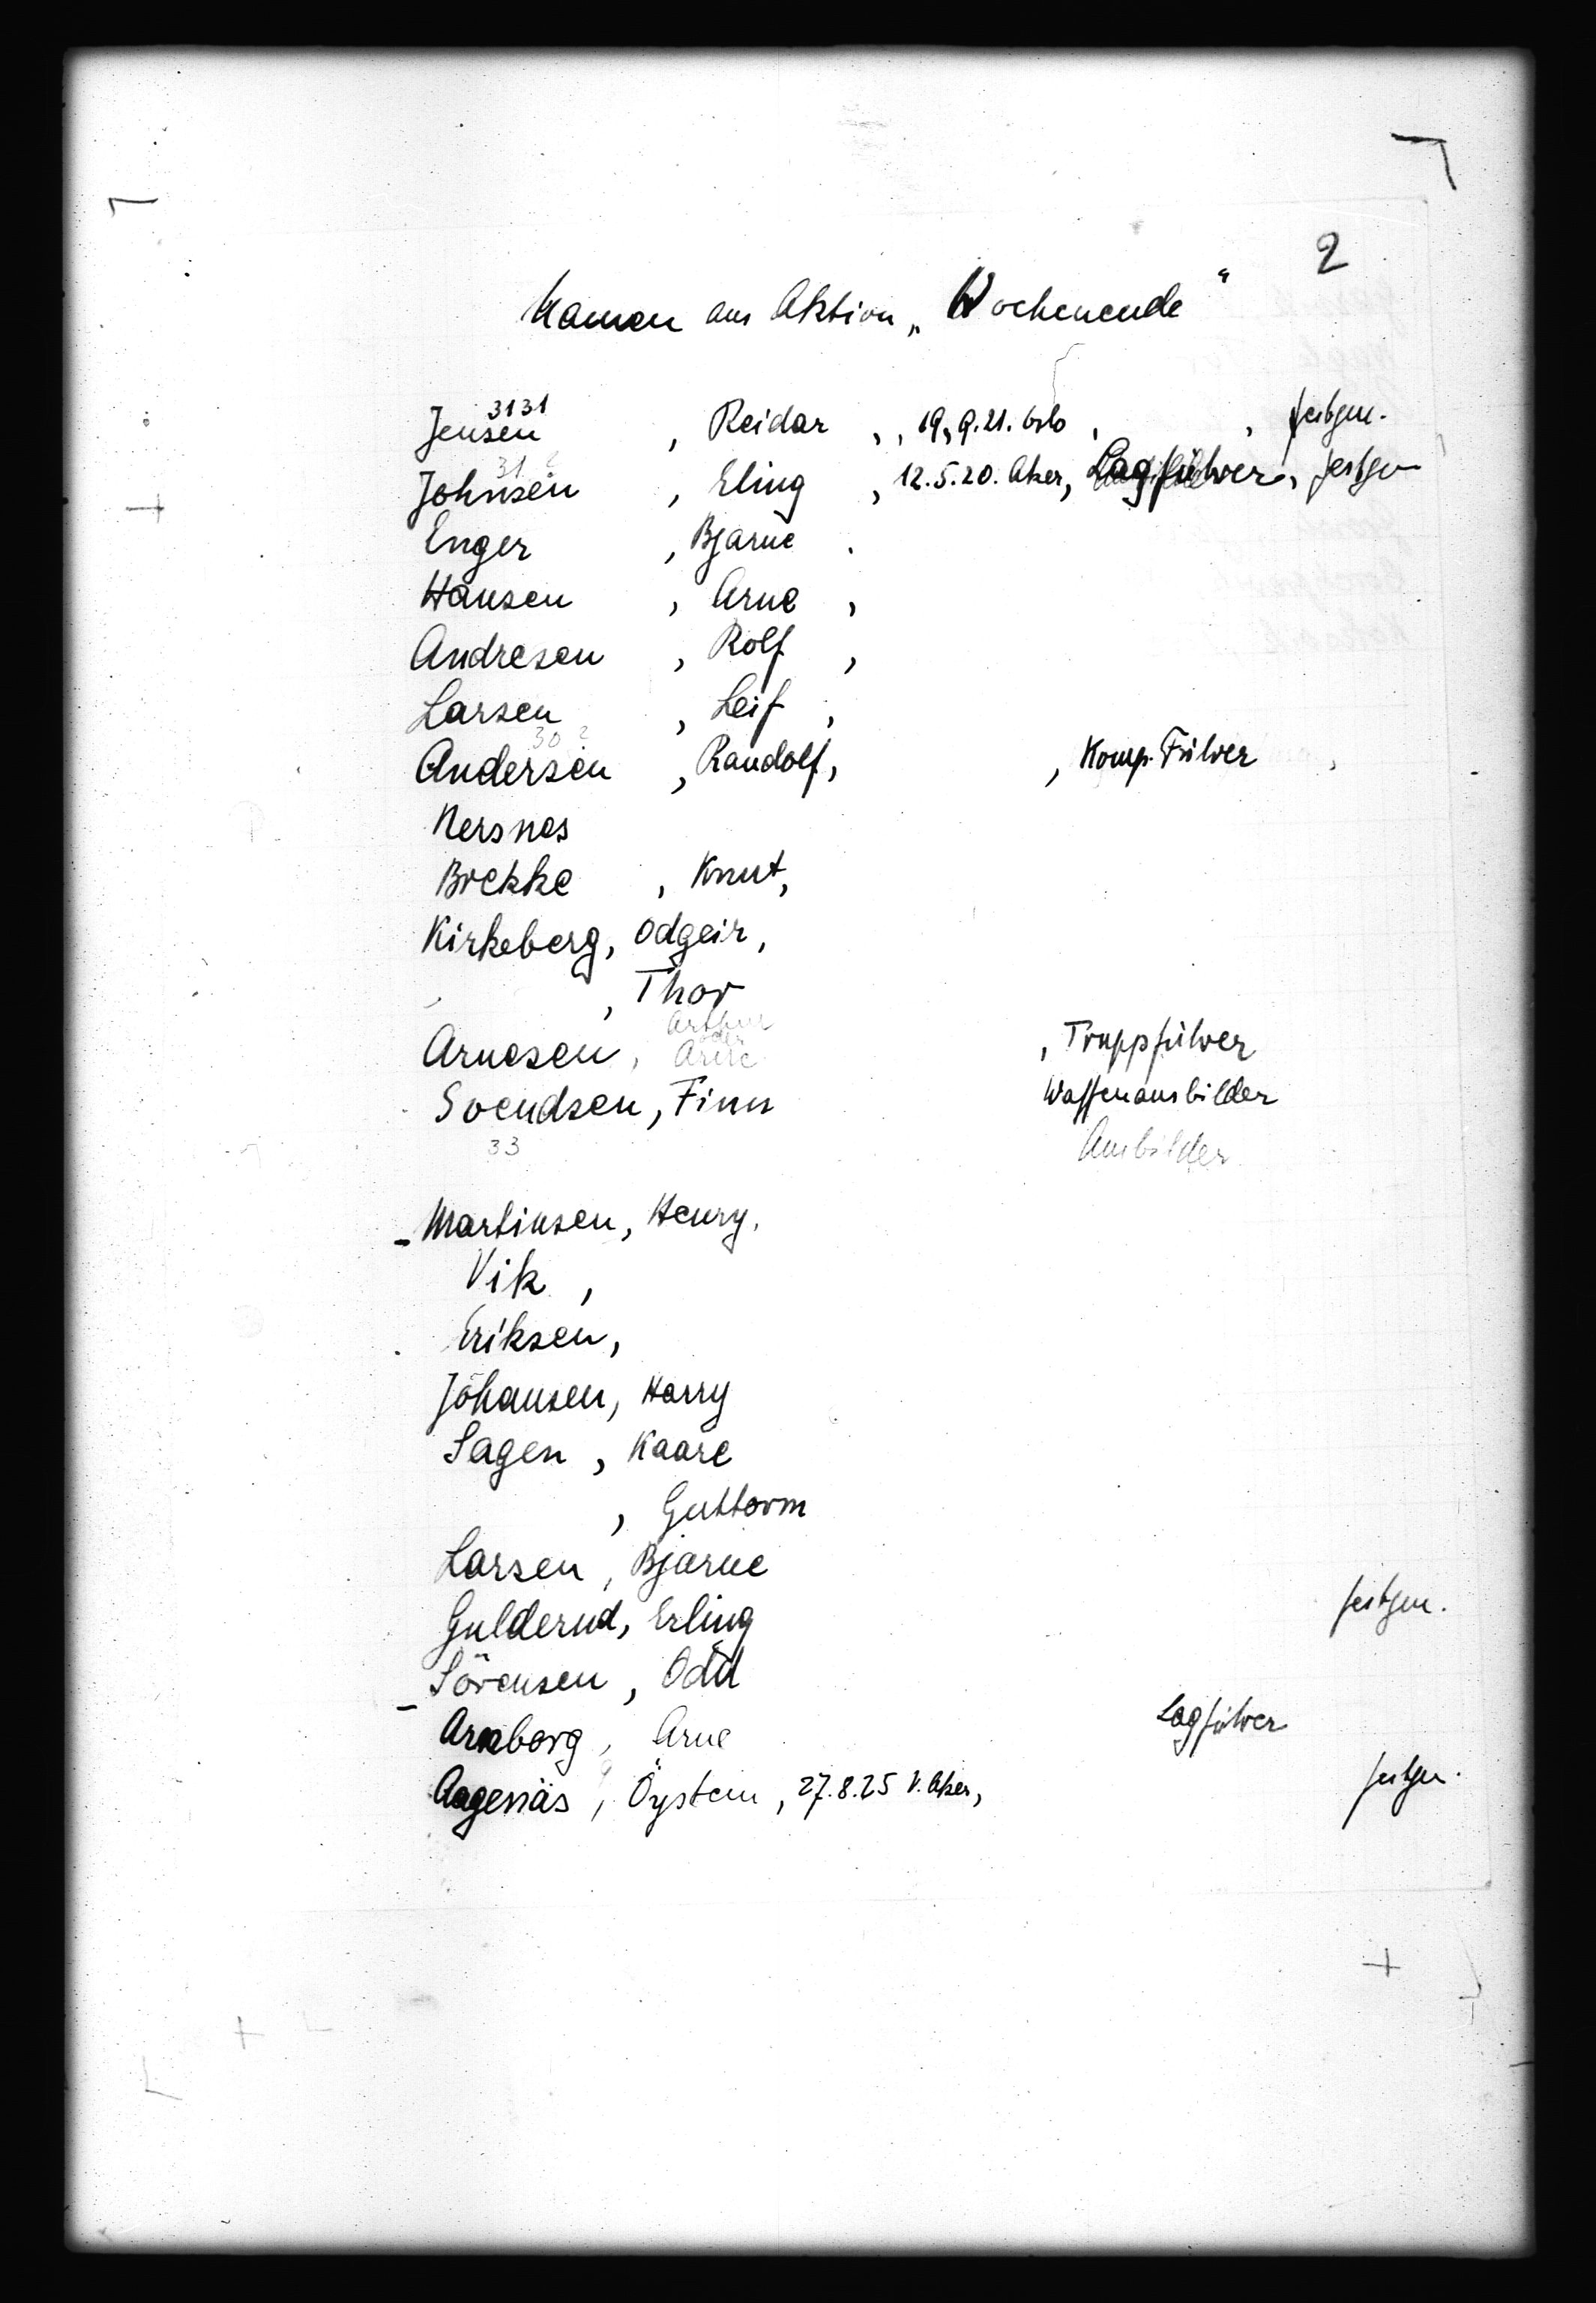 2
Namen aus Aktion „Wochenende“
3131
Jensen , Reidar , , 19.9.21. Oslo , , festgen.
31 ?
Johnsen , Eling , 12.5.20. Aker, Lagführer, festgen
Enger , Bjarne .
Hansen , Arne ,
Andresen , Rolf ,
Larsen , Leif ,
30 ?
Andersen , Randolf, , Komp. Führer ,
Nersnes
Brekke , Knut,
Kirkeberg, Odgeir,
, Thor
Arthur
oder
Arnesen, Arne , Truppführer
Svendsen, Finn Waffenausbilder
33 Ausbilder
- Martinsen, Henry.
Vik ,
Eriksen,
Johansen, Harry
Sagen , Kaare
, Guttorm
Larsen , Bjarne
Guldernd, Erling festgen.
Sörensen , Odd
- Arnborg , Arne Lagführer
Aagenäs , Öystein , 27.8.25 V. Aker, festgen.